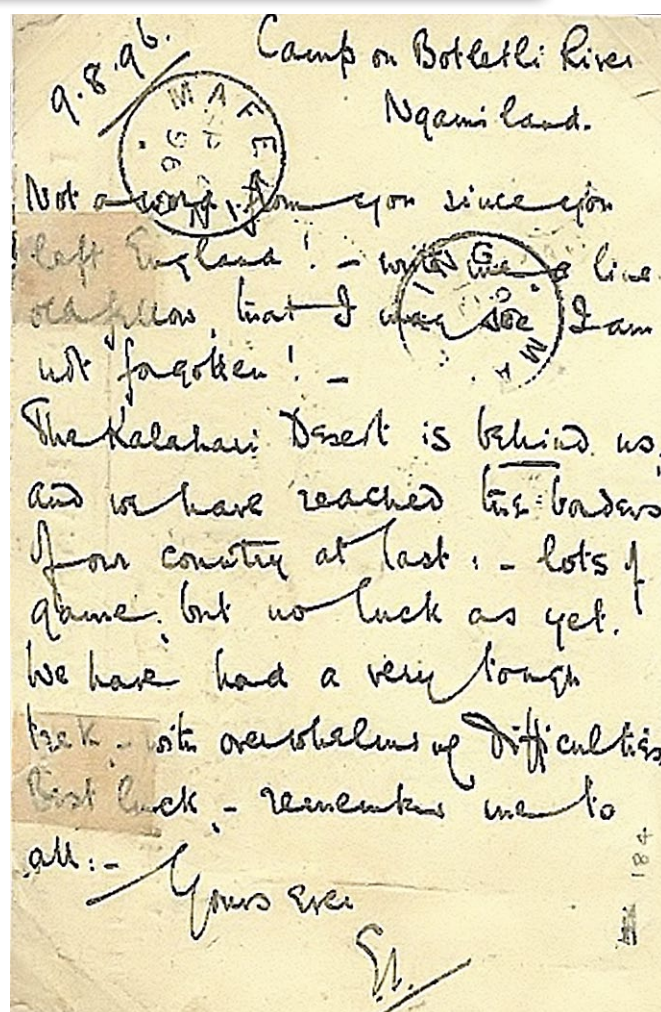 9.8.96.
Camp on Botletli River
Ngamiland.
MAFEKING
Not a word from you since you
left England! - write me a line
old fellow, that I may see I am
not forgotten! -
The Kalahari Desert is behind us,
and we have reached the borders
of our country at last: - lots of
game, but no luck as yet.
We have had a very tough
trek - with overwhelming difficulties
Best luck - remember me to
all: -
Yours ever
184